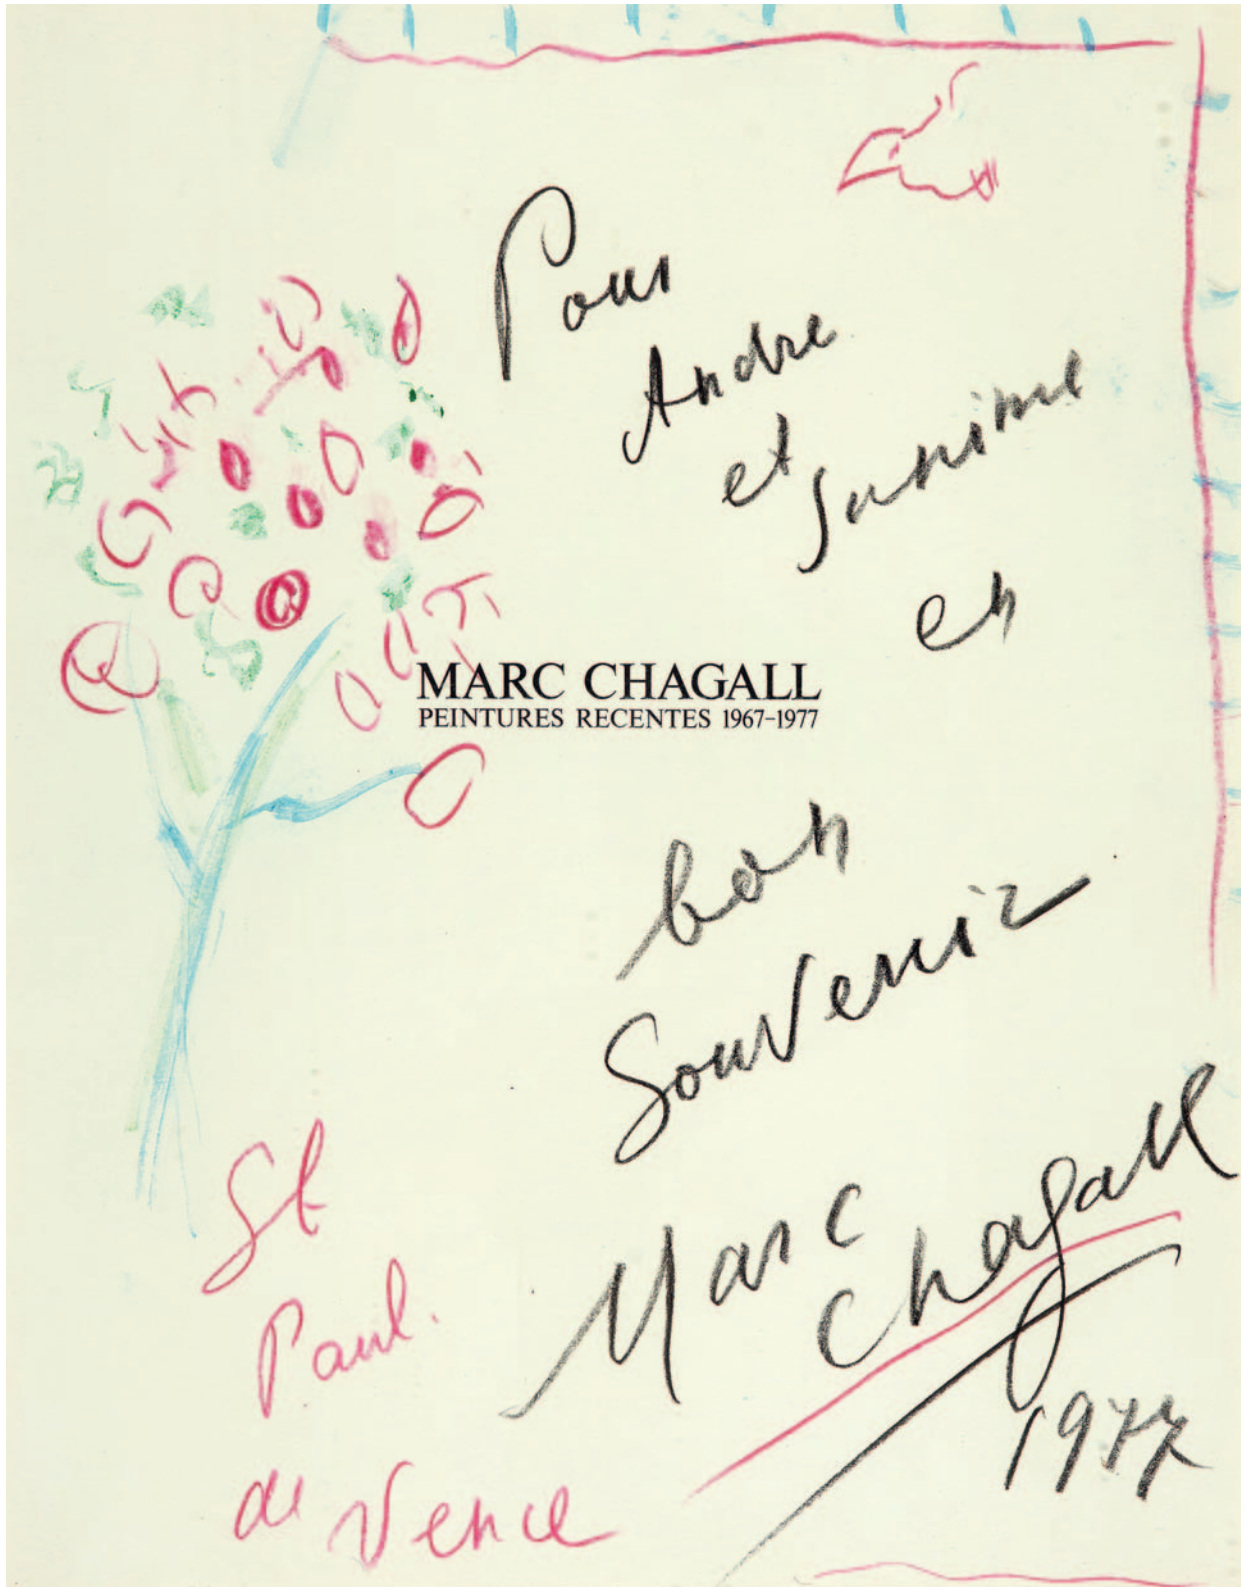 Pour
Andre
et
en
MARC CHAGALL
PEINTURES RECENTES 1967–1977
bon
Souvenir
Marc
Chagall
1977
St
Paul.
de Vence